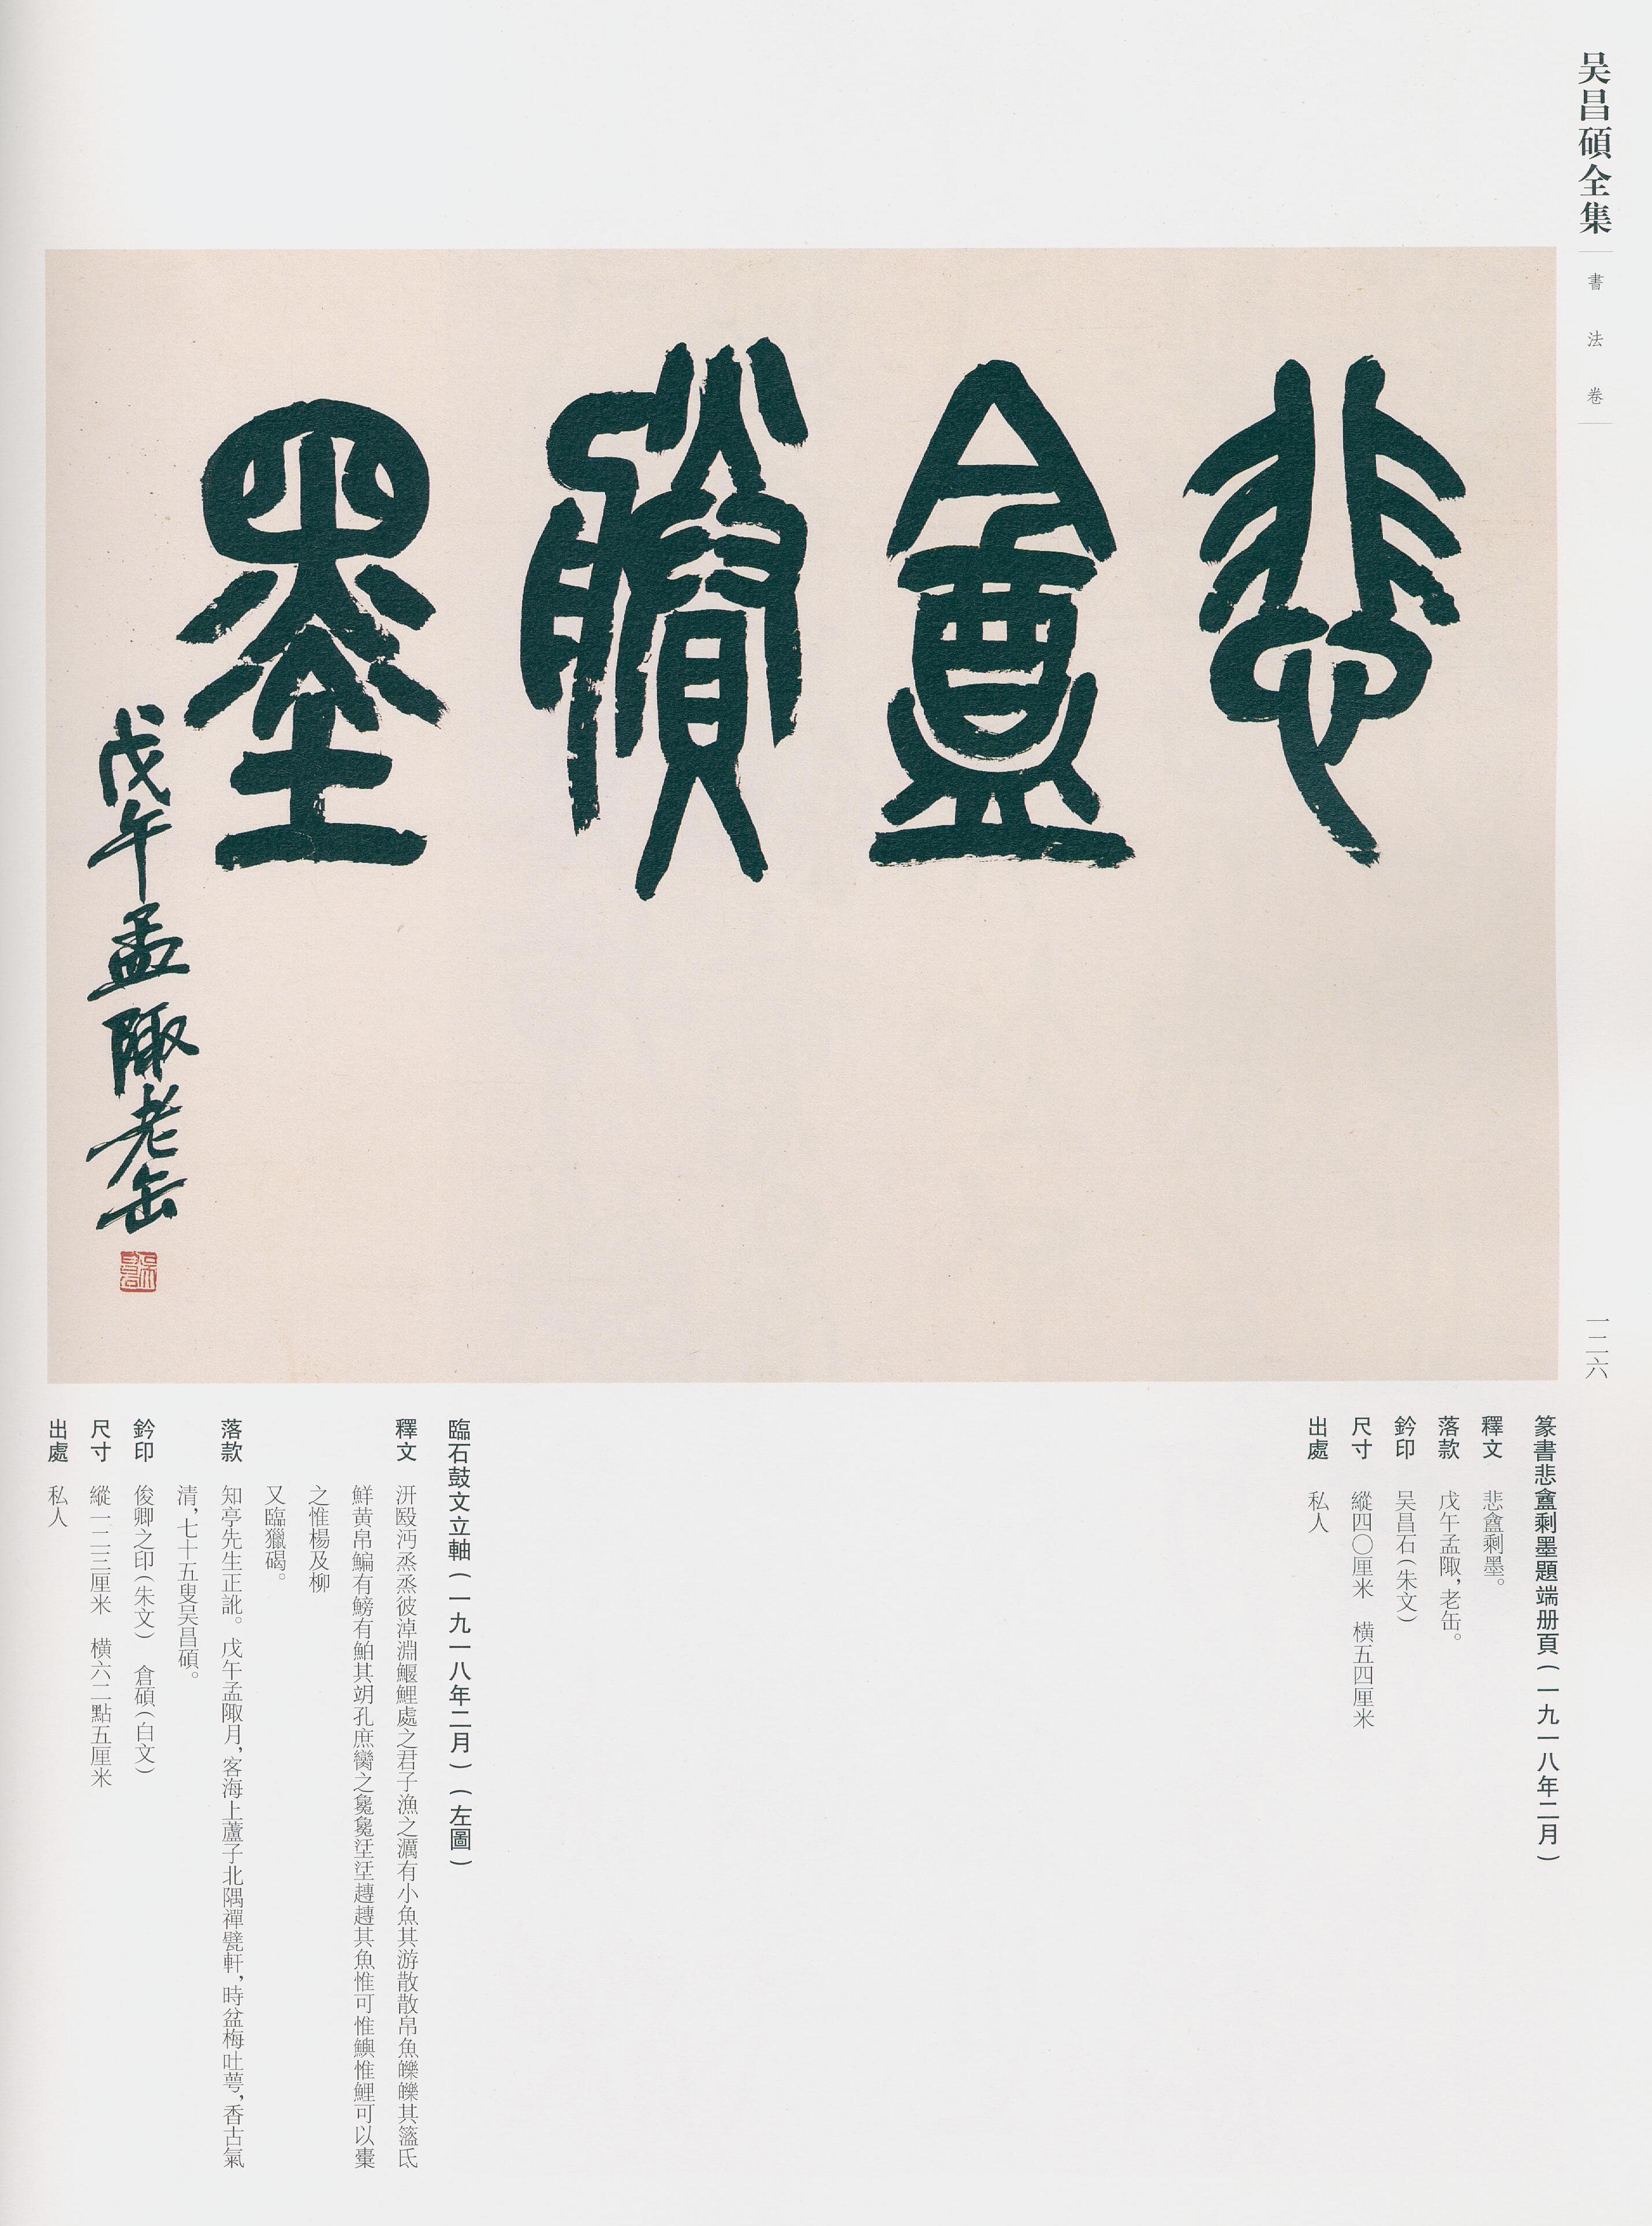 吴昌碩全集
書法卷
一二六
悲盦賸墨
戊午孟陬老缶
篆書悲盦剩墨題端册頁(一九一八年二月)
釋文 悲盦剩墨。
落款 戊午孟陬,老缶。
鈐印 吴昌石(朱文)
尺寸 縱四〇厘米 橫五四厘米
出處 私人
臨石鼓文立軸(一九一八年二月)(左圖)
釋文 汧殹沔烝烝彼淖淵鰋鯉處之君子漁之澫有小魚其游散散帛魚皪皪其簉氐
鮮黄帛鯿有鰟有鮊其朔孔庶臠之㲋㲋汪汪趬趬其魚惟可惟鱮惟鯉可以橐
之惟楊及柳
又臨獵碣。
落款 知亭先生正訛。戊午孟陬月,客海上蘆子北隅禪甓軒,時盆梅吐萼,香古氣
清,七十五叟吴昌碩。
鈐印 俊卿之印(朱文) 倉碩(白文)
尺寸 縱一二三厘米 橫六二點五厘米
出處 私人